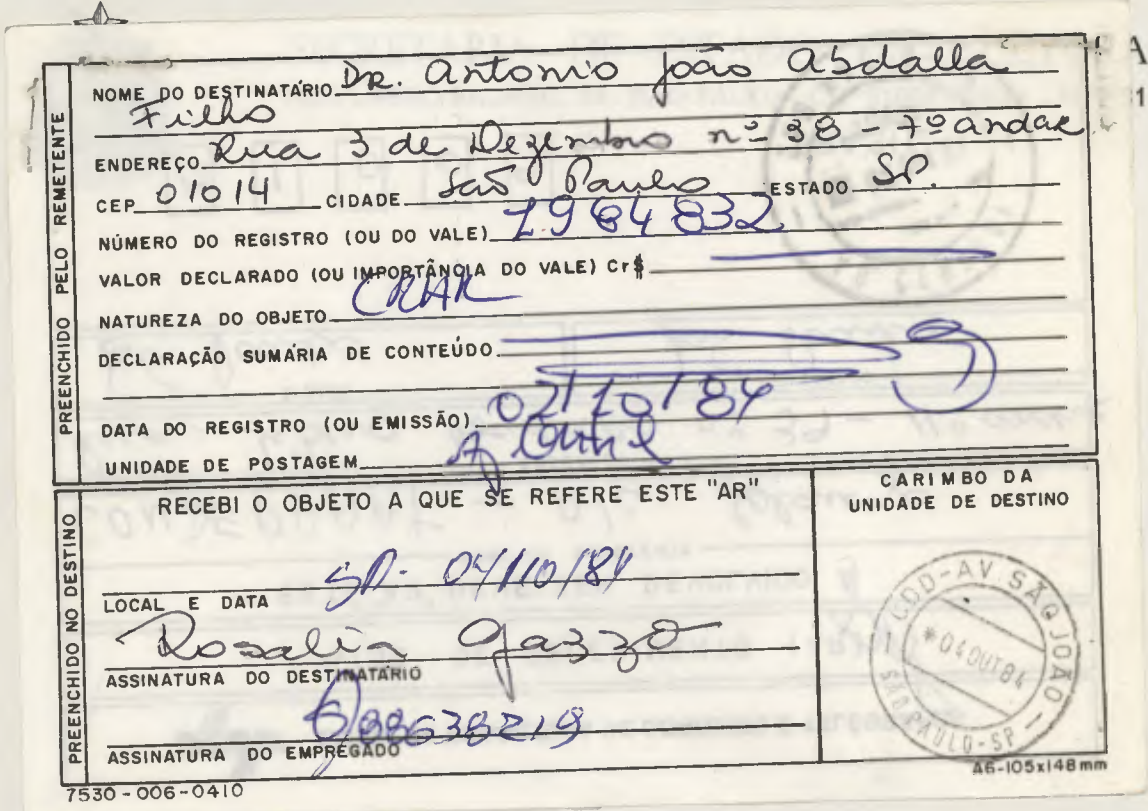 NOME DO DESTINATÁRIO Dr. Antonio João Abdalla
Filho
ENDEREÇO Rua 3 de Dezembro nº 38 - 7º andar
CEP 01014 CIDADE São Paulo ESTADO SP.
NÚMERO DO REGISTRO (OU DO VALE) 1984832
VALOR DECLARADO (OU IMPORTÂNCIA DO VALE) Cr$
NATUREZA DO OBJETO
DECLARAÇÃO SUMÁRIA DE CONTEÚDO
DATA DO REGISTRO (OU EMISSÃO) 02/10/84
UNIDADE DE POSTAGEM
PREENCHIDO PELO REMETENTE
RECEBI O OBJETO A QUE SE REFERE ESTE "AR"
LOCAL E DATA SP- 04/10/84
Rosalia Gazzo
ASSINATURA DO DESTINATÁRIO
88638219
ASSINATURA DO EMPREGADO
PREENCHIDO NO DESTINO
CARIMBO DA
UNIDADE DE DESTINO
CDD-AV. SÃO JOÃO
*04 OUT 84
SÃO PAULO-SP
A6-105x148 mm
7530-006-0410